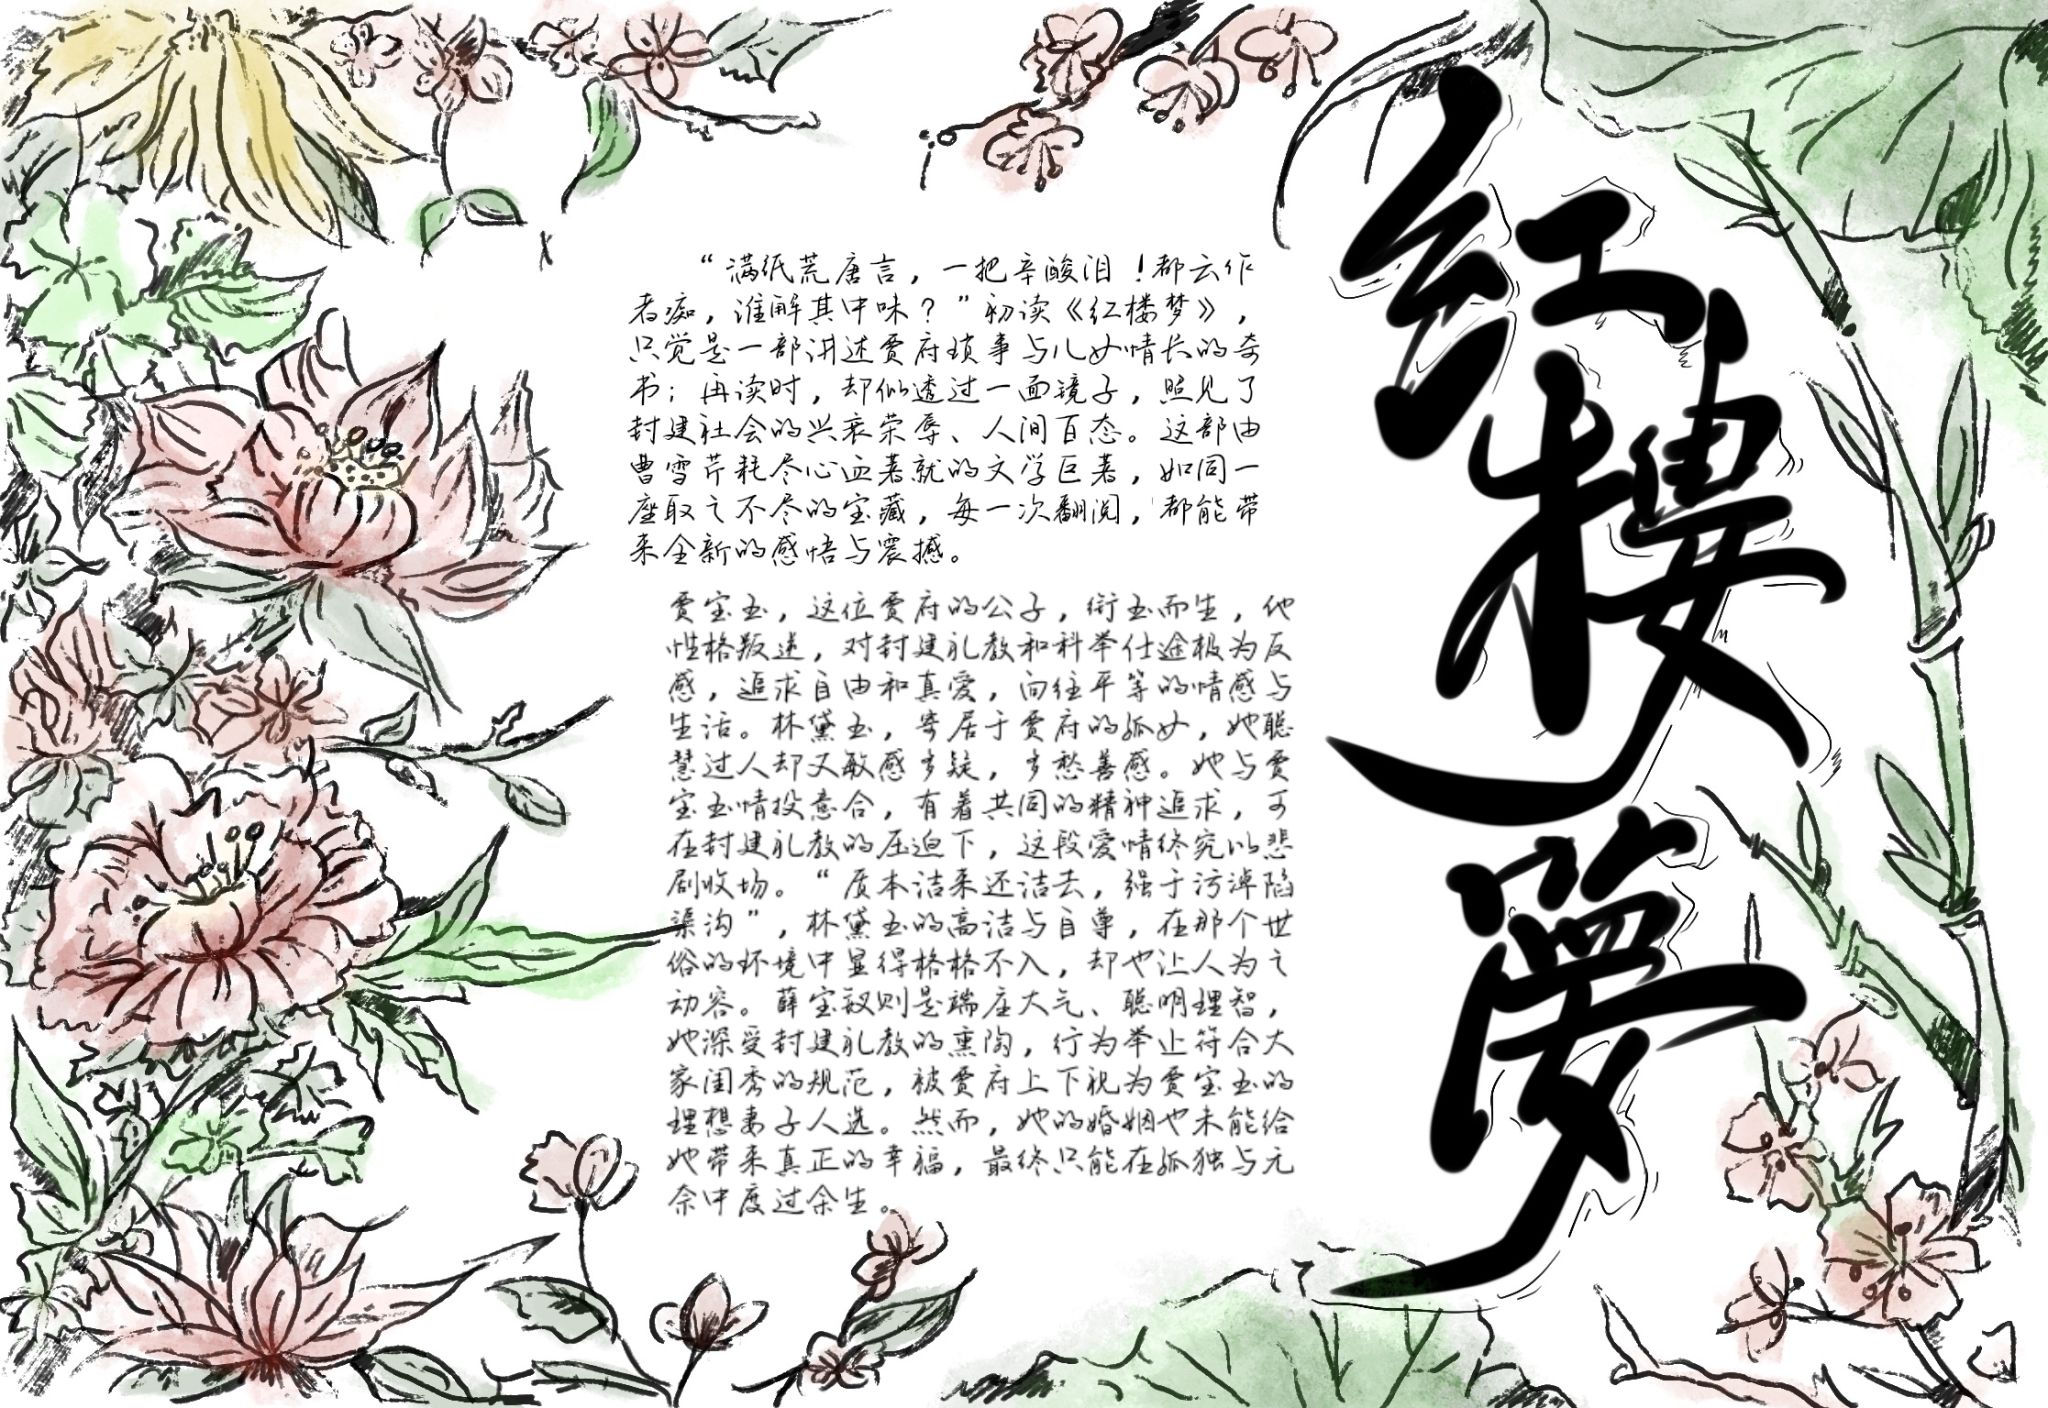 红楼梦
“满纸荒唐言，一把辛酸泪！都云作
者痴，谁解其中味？”初读《红楼梦》，
只觉是一部讲述贾府琐事与儿女情长的奇
书；再读时，却似透过一面镜子，照见了
封建社会的兴衰荣辱、人间百态。这部由
曹雪芹耗尽心血著就的文学巨著，如同一
座取之不尽的宝藏，每一次翻阅，都能带
来全新的感悟与震撼。
贾宝玉，这位贾府的公子，衔玉而生，他
性格叛逆，对封建礼教和科举仕途极为反
感，追求自由和真爱，向往平等的情感与
生活。林黛玉，寄居于贾府的孤女，她聪
慧过人却又敏感多疑，多愁善感。她与贾
宝玉情投意合，有着共同的精神追求，可
在封建礼教的压迫下，这段爱情终究以悲
剧收场。“质本洁来还洁去，强于污淖陷
渠沟”，林黛玉的高洁与自尊，在那个世
俗的环境中显得格格不入，却也让人为之
动容。薛宝钗则是端庄大气、聪明理智，
她深受封建礼教的熏陶，行为举止符合大
家闺秀的规范，被贾府上下视为贾宝玉的
理想妻子人选。然而，她的婚姻也未能给
她带来真正的幸福，最终只能在孤独与无
奈中度过余生。